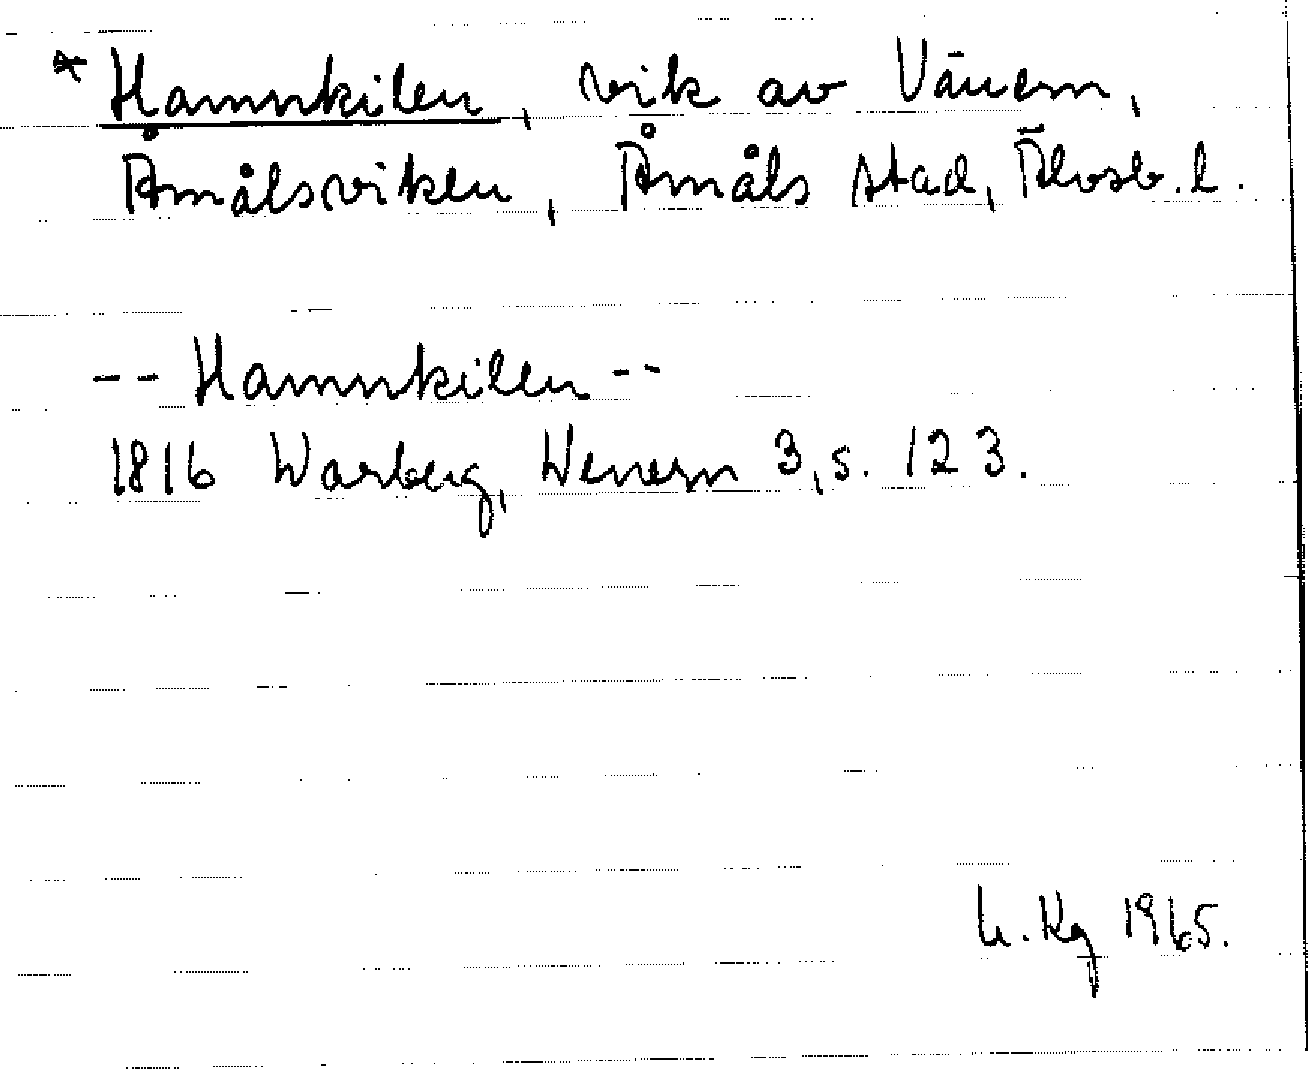 * Hamnkilen, vik av Vänern,
Åmålsviken, Åmåls stad, Älvsb. l.
-- Hamnkilen --
1816 Warberg, Wenern 3, s. 123.
U. Kg 1965.